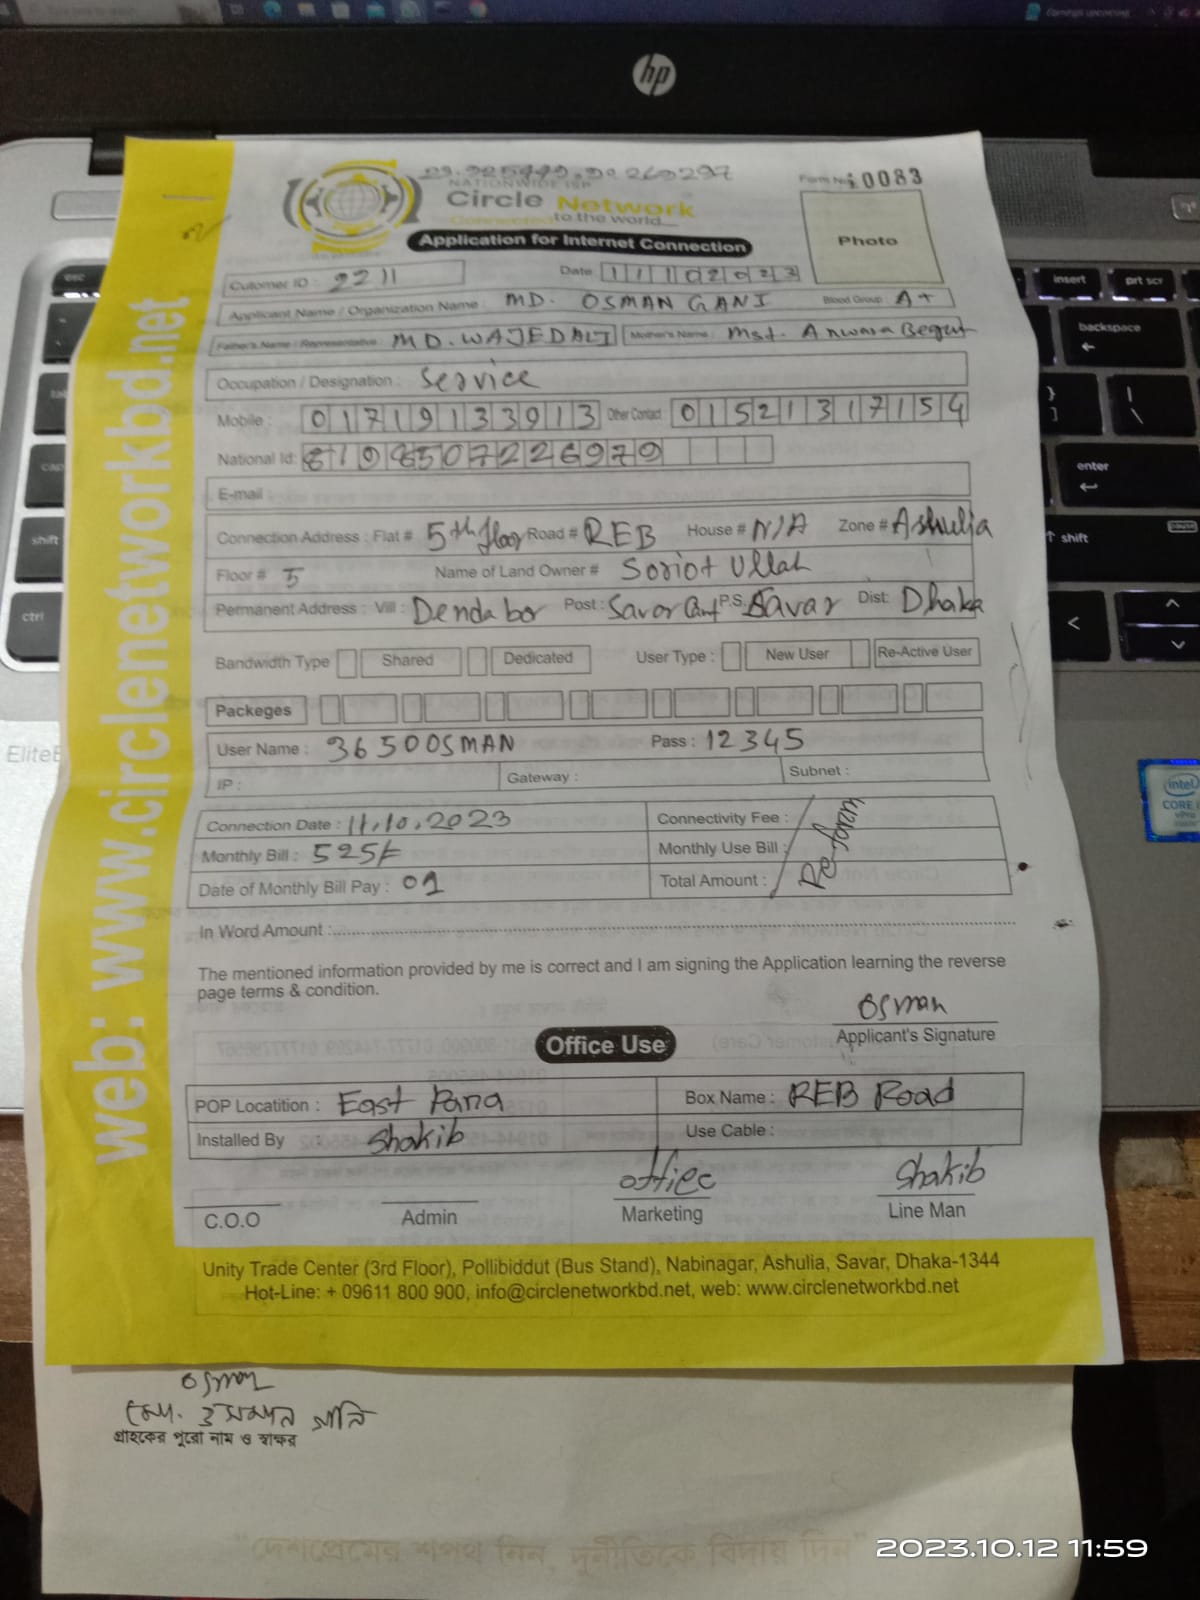 hp
NATIONWIDE ISP
Form No: 10083
Circle Network
Connected to the world....
Application for Internet Connection
Photo
Cutomer ID : 2211
Date 11102023
Applicant Name / Organization Name : MD. OSMAN GANI Blood Group : A+
Father's Name / Representative : MD. WAJEDALI Mother's Name : Mst. Anwara Begum
Occupation / Designation : Service
Mobile : 01719133913 Other Contact : 01521317154
National Id: 8198507226979
E-mail
Connection Address : Flat # 5th floor Road # REB House # N/A Zone # Ashulia
Floor # 5 Name of Land Owner # Soriot Ullah
Permanent Address : Vill : Dendabor Post : Savar Cant P.S. Savar Dist: Dhaka
Bandwidth Type Shared Dedicated User Type : New User Re-Active User
Packeges
User Name : 3650OSMAN Pass : 12345
IP : Gateway : Subnet :
Connection Date : 11.10.2023 Connectivity Fee :
Monthly Bill : 525/= Monthly Use Bill :
Date of Monthly Bill Pay : 01 Total Amount :
In Word Amount :
The mentioned information provided by me is correct and I am signing the Application learning the reverse
page terms & condition.
Osman
Applicant's Signature
Office Use
POP Locatition : East Para Box Name : REB Road
Installed By : Shakib Use Cable :
offiec Shakib
C.O.O Admin Marketing Line Man
Unity Trade Center (3rd Floor), Pollibiddut (Bus Stand), Nabinagar, Ashulia, Savar, Dhaka-1344
Hot-Line: + 09611 800 900, info@circlenetworkbd.net, web: www.circlenetworkbd.net
web: www.circlenetworkbd.net
Osman
মো. ওসমান গানি
গ্রাহকের পুরো নাম ও স্বাক্ষর
"দেশপ্রেমের শপথ নিন, দুর্নীতিকে বিদায় দিন"
2023.10.12 11:59
insert
prt scr
backspace
enter
shift
esc
shift
ctrl
intel
CORE